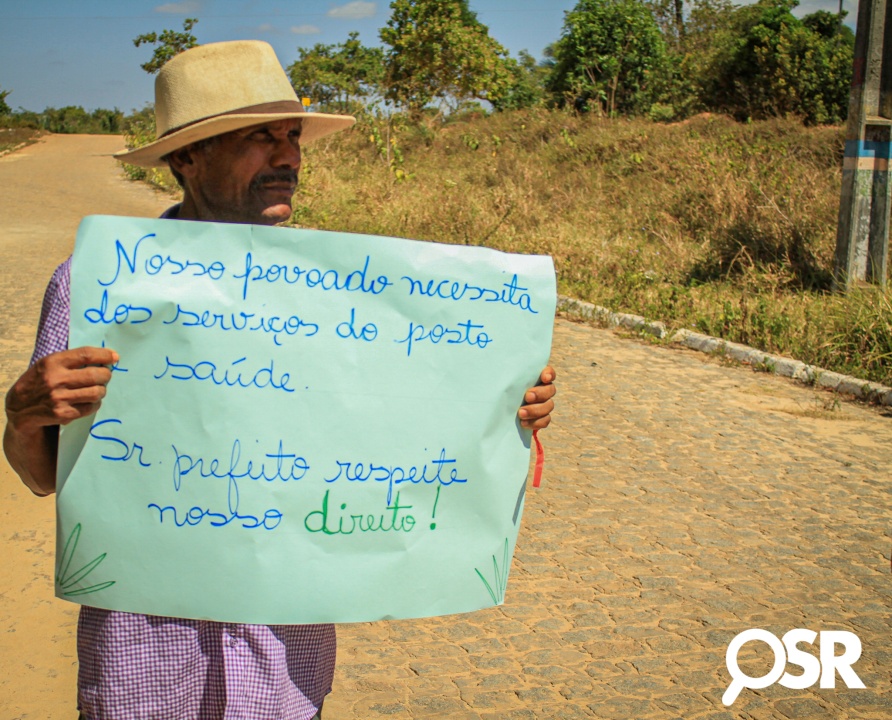 Nosso povoado necessita
dos serviços do posto
saúde.
Sr. prefeito respeite
nosso direito!
OSR